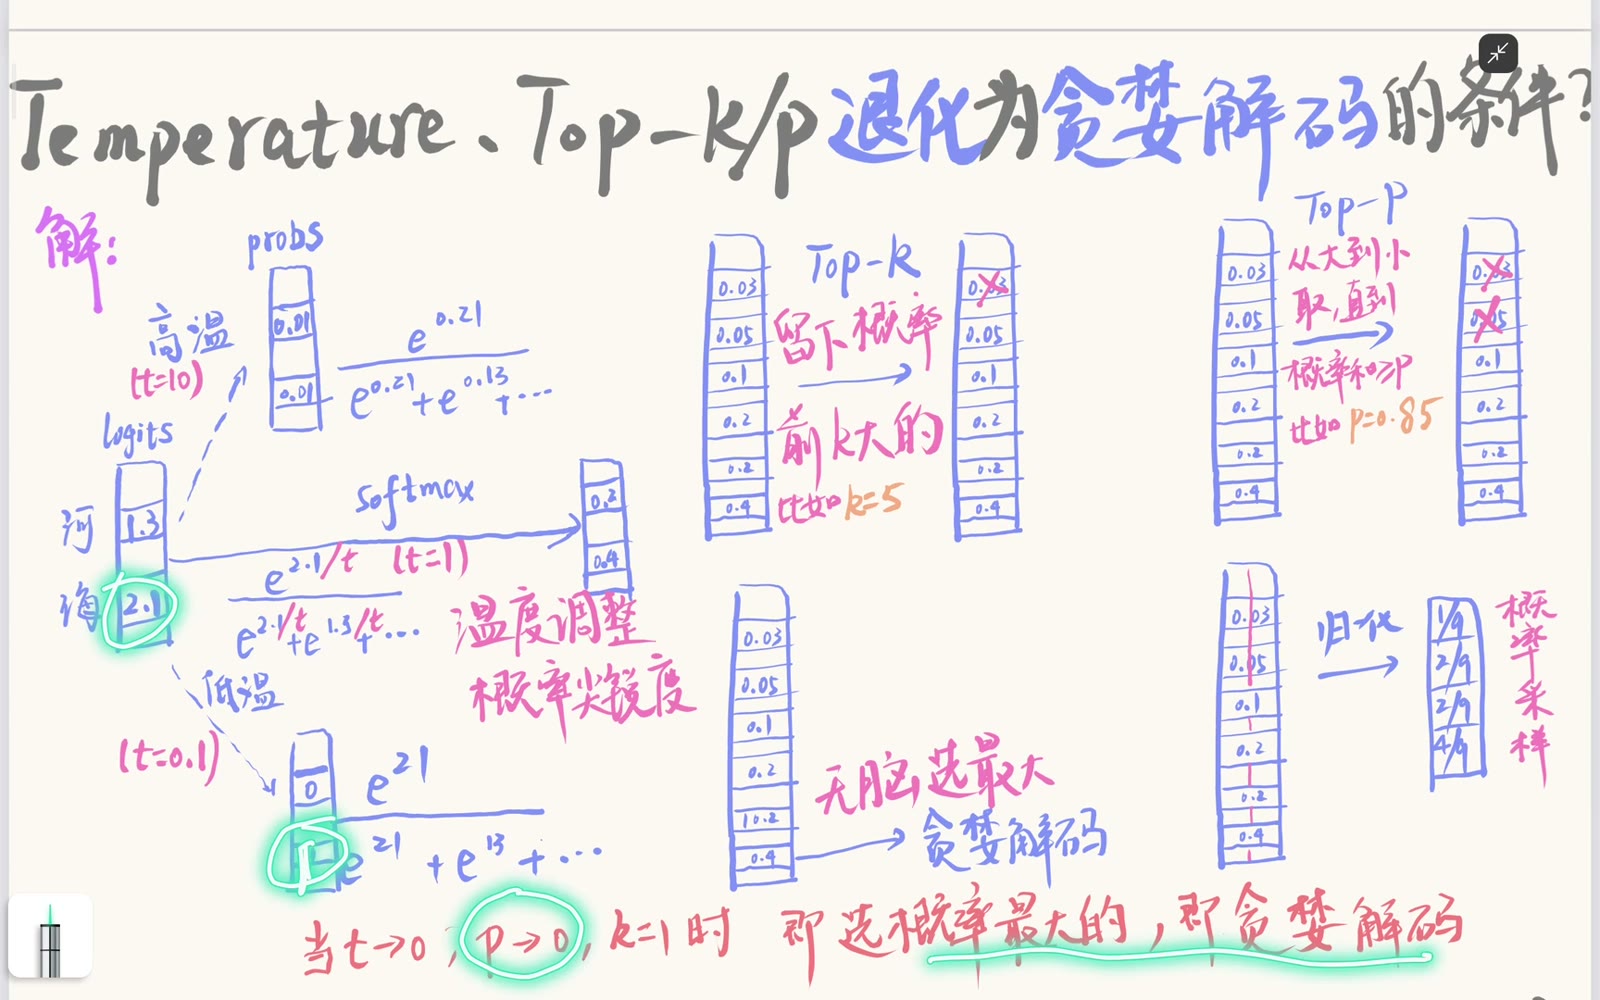 Temperature、Top-k/p 退化为贪婪解码的条件?
解:
probs
0.01
0.01
高温
(t=10)
e^0.21
e^0.21+e^0.13+…
logits
河
1.3
海
2.1
softmax
(t=1)
e^2.1/t
e^2.1/t+e^1.3/t+…
0.2
0.4
温度调整
概率尖锐度
低温
(t=0.1)
0
1
e^21
e^21+e^13+…
0.03
0.05
0.1
0.2
0.2
0.4
Top-k
留下概率
前k大的
比如k=5
0.03
0.05
0.1
0.2
0.2
0.4
0.03
0.05
0.1
0.2
0.2
0.4
无脑选最大
贪婪解码
0.03
0.05
0.1
0.2
0.2
0.4
Top-P
从大到小
取,直到
概率和≥P
比如P=0.85
0.03
0.05
0.1
0.2
0.2
0.4
0.03
0.05
0.1
0.2
0.2
0.4
归一化
1/9
2/9
2/9
4/9
概率采样
当t→0,p→0,k=1时 即选概率最大的,即贪婪解码